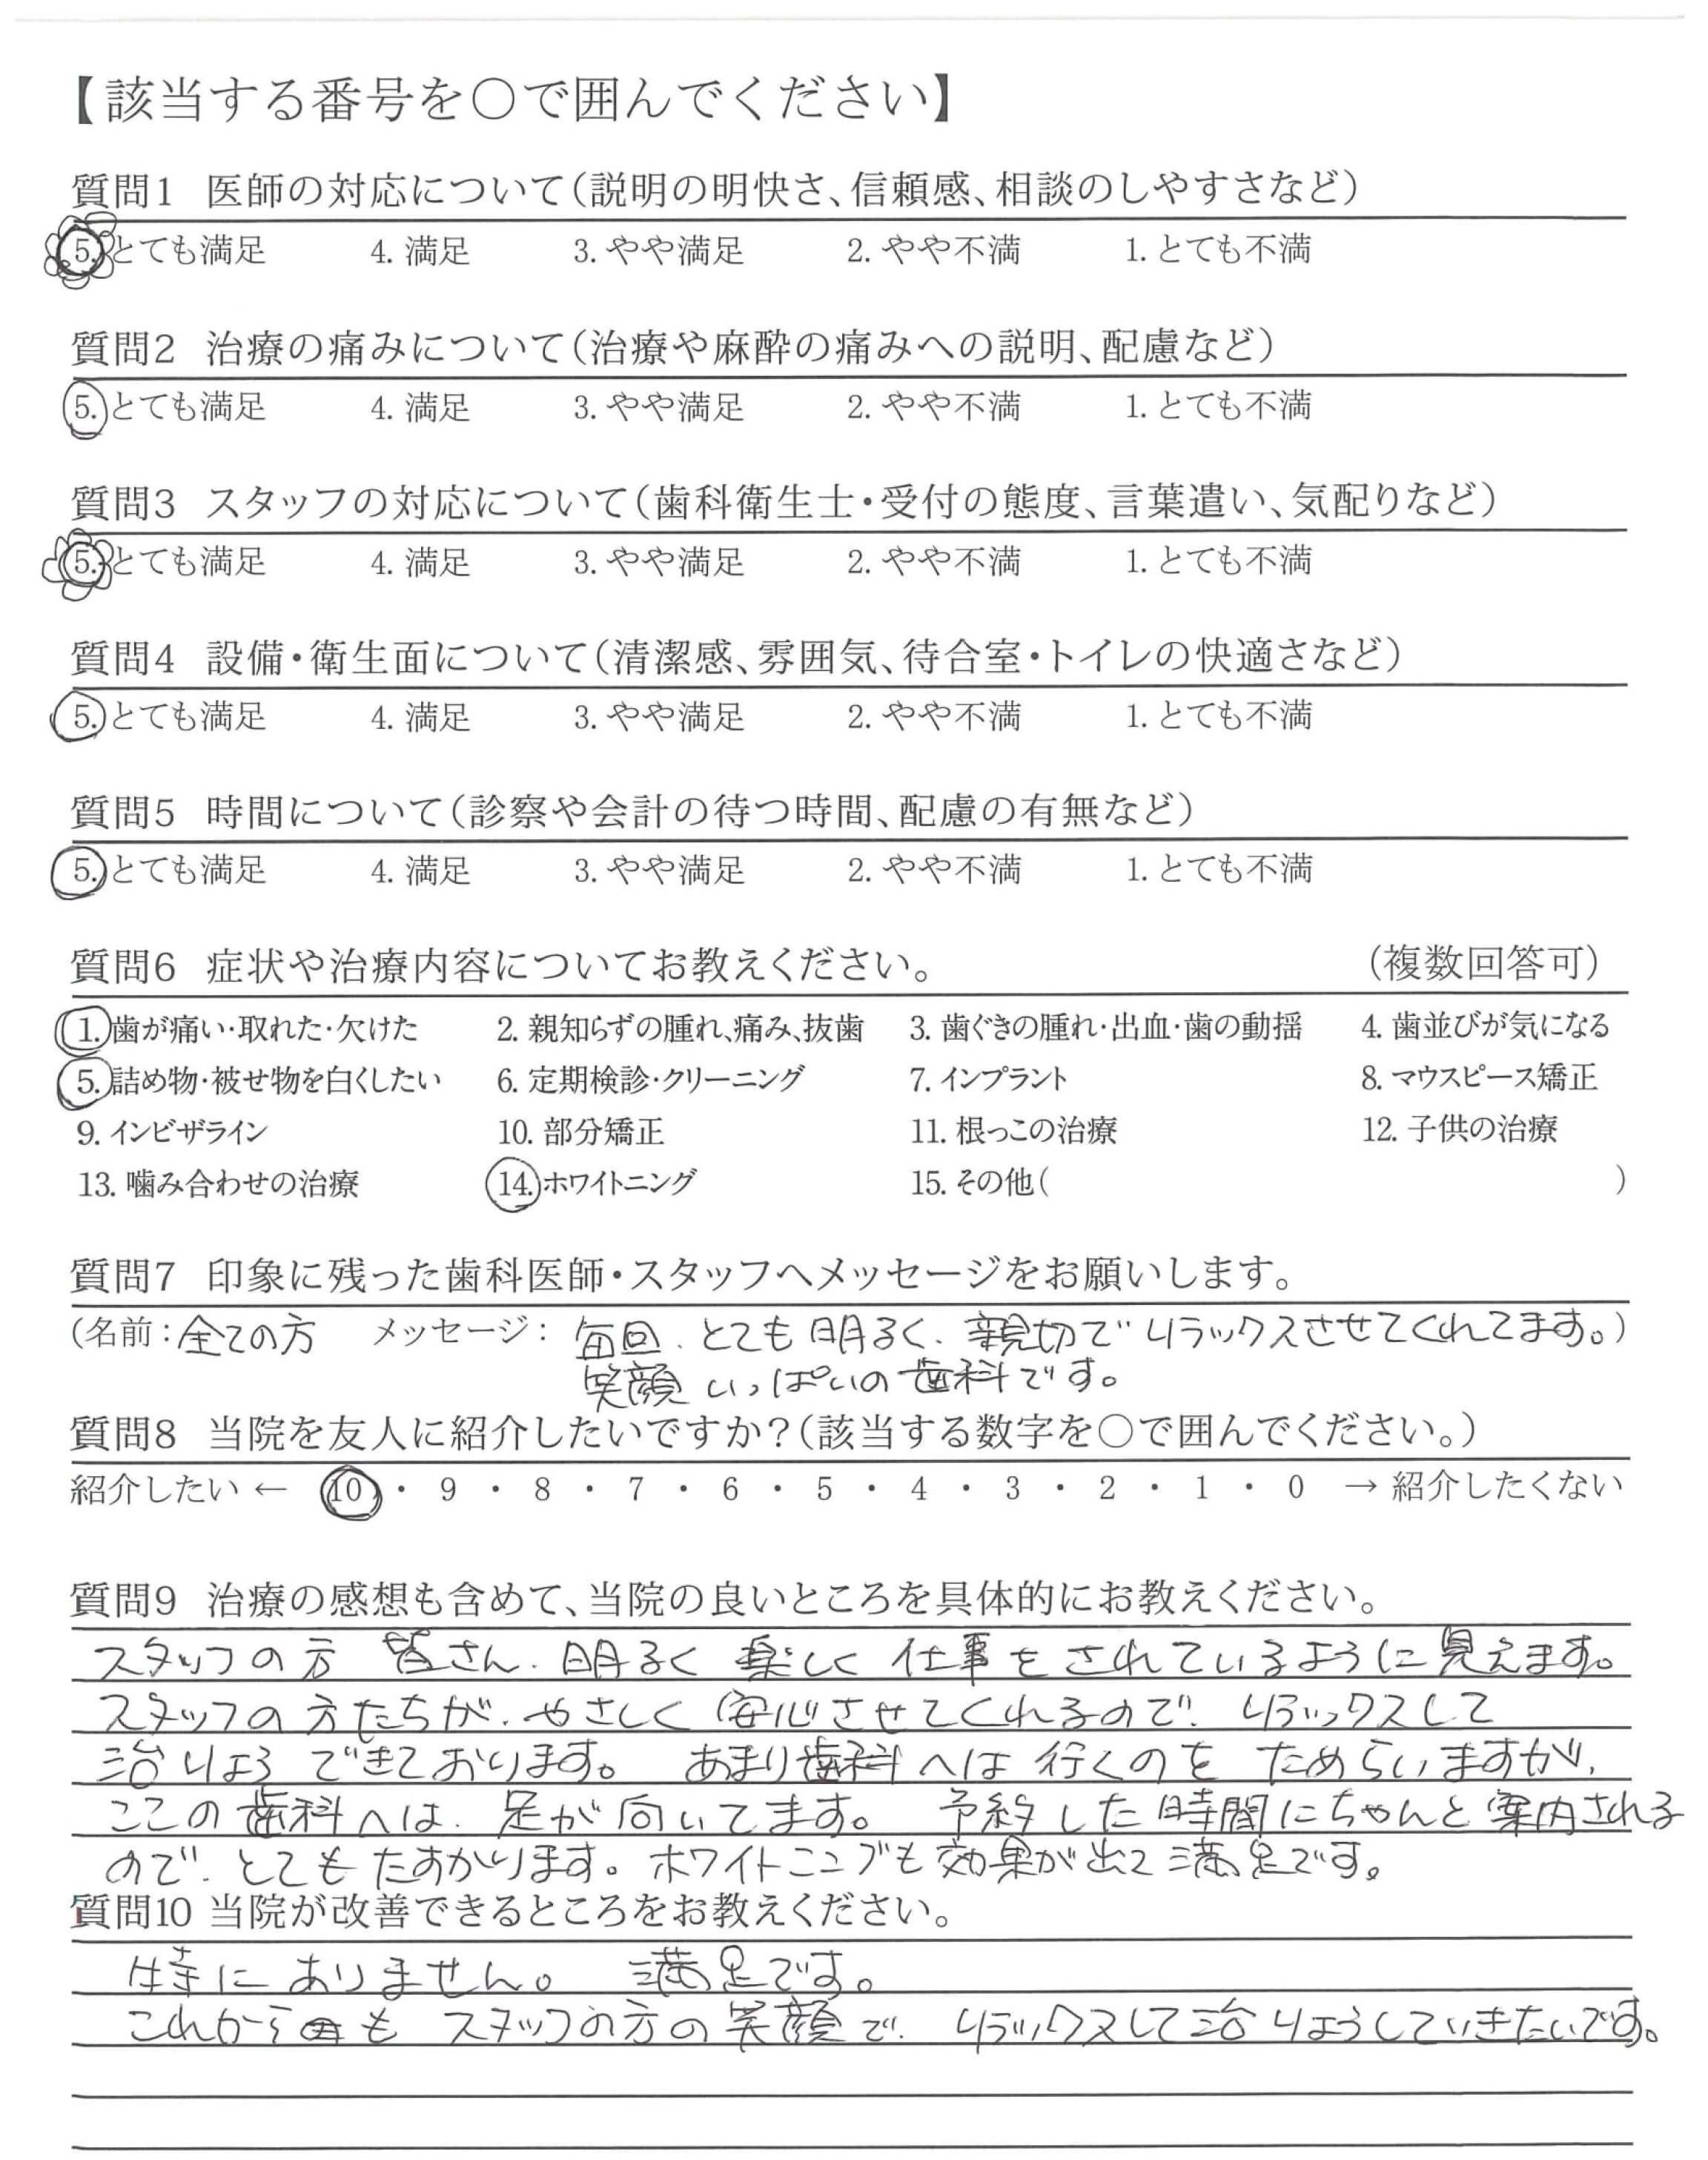 【該当する番号を○で囲んでください】
質問1 医師の対応について(説明の明快さ、信頼感、相談のしやすさなど)
5. とても満足 4. 満足 3. やや満足 2. やや不満 1. とても不満
質問2 治療の痛みについて(治療や麻酔の痛みへの説明、配慮など)
5. とても満足 4. 満足 3. やや満足 2. やや不満 1. とても不満
質問3 スタッフの対応について(歯科衛生士・受付の態度、言葉遣い、気配りなど)
5. とても満足 4. 満足 3. やや満足 2. やや不満 1. とても不満
質問4 設備・衛生面について(清潔感、雰囲気、待合室・トイレの快適さなど)
5. とても満足 4. 満足 3. やや満足 2. やや不満 1. とても不満
質問5 時間について(診察や会計の待つ時間、配慮の有無など)
5. とても満足 4. 満足 3. やや満足 2. やや不満 1. とても不満
質問6 症状や治療内容についてお教えください。 (複数回答可)
1. 歯が痛い・取れた・欠けた 2. 親知らずの腫れ、痛み、抜歯 3. 歯ぐきの腫れ・出血・歯の動揺 4. 歯並びが気になる
5. 詰め物・被せ物を白くしたい 6. 定期検診・クリーニング 7. インプラント 8. マウスピース矯正
9. インビザライン 10. 部分矯正 11. 根っこの治療 12. 子供の治療
13. 噛み合わせの治療 14. ホワイトニング 15. その他( )
質問7 印象に残った歯科医師・スタッフへメッセージをお願いします。
(名前:全ての方 メッセージ: 毎回、とても明るく、親切でリラックスさせてくれてます。)
笑顔いっぱいの歯科です。
質問8 当院を友人に紹介したいですか?(該当する数字を○で囲んでください。)
紹介したい ← 10 ・ 9 ・ 8 ・ 7 ・ 6 ・ 5 ・ 4 ・ 3 ・ 2 ・ 1 ・ 0 → 紹介したくない
質問9 治療の感想も含めて、当院の良いところを具体的にお教えください。
スタッフの方 皆さん、明るく 楽しく 仕事をされているように見えます。
スタッフの方たちが、やさしく安心させてくれるので、リラックスして
治りょうできております。 あまり歯科へは行くのをためらいますが、
ここの歯科へは、足が向いてます。 予約した時間にちゃんと案内される
ので、とてもたすかります。ホワイトニングも効果が出て満足です。
質問10 当院が改善できるところをお教えください。
特にありません。 満足です。
これからも スタッフの方の笑顔で、リラックスして治りょうしていきたいです。